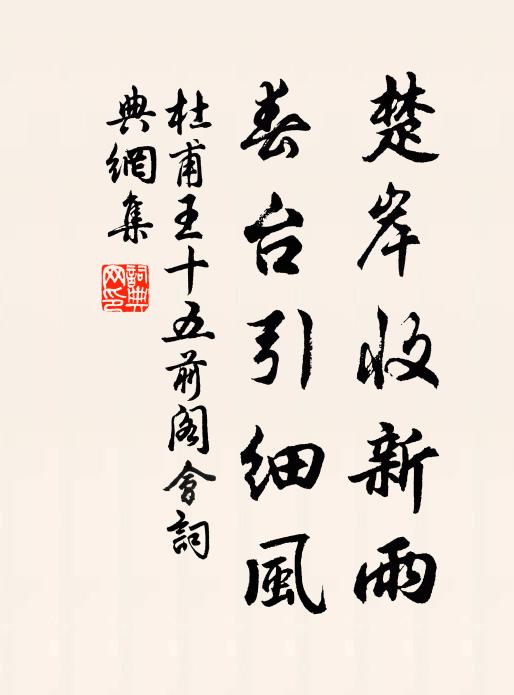 楚岸收新雨
春台引细風
杜甫王十五前阁會詞
典網集
詞典
网印